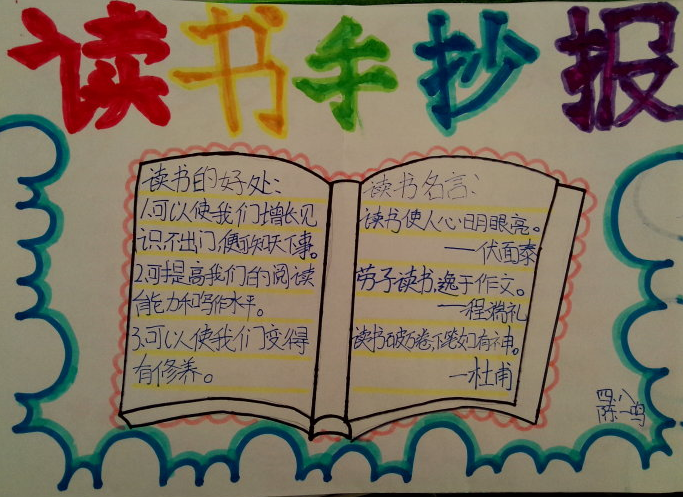 读书手抄报
读书的好处：
1.可以使我们增长见
识，不出门便可知天下事。
2.可提高我们的阅读
能力和写作水平。
3.可以使我们变得
有修养。
读书名言：
读书使人心明眼亮。
——伏面泰
劳于读书，逸于作文。
——程端礼
读书破万卷，下笔如有神。
——杜甫
四、八
陈一鸣